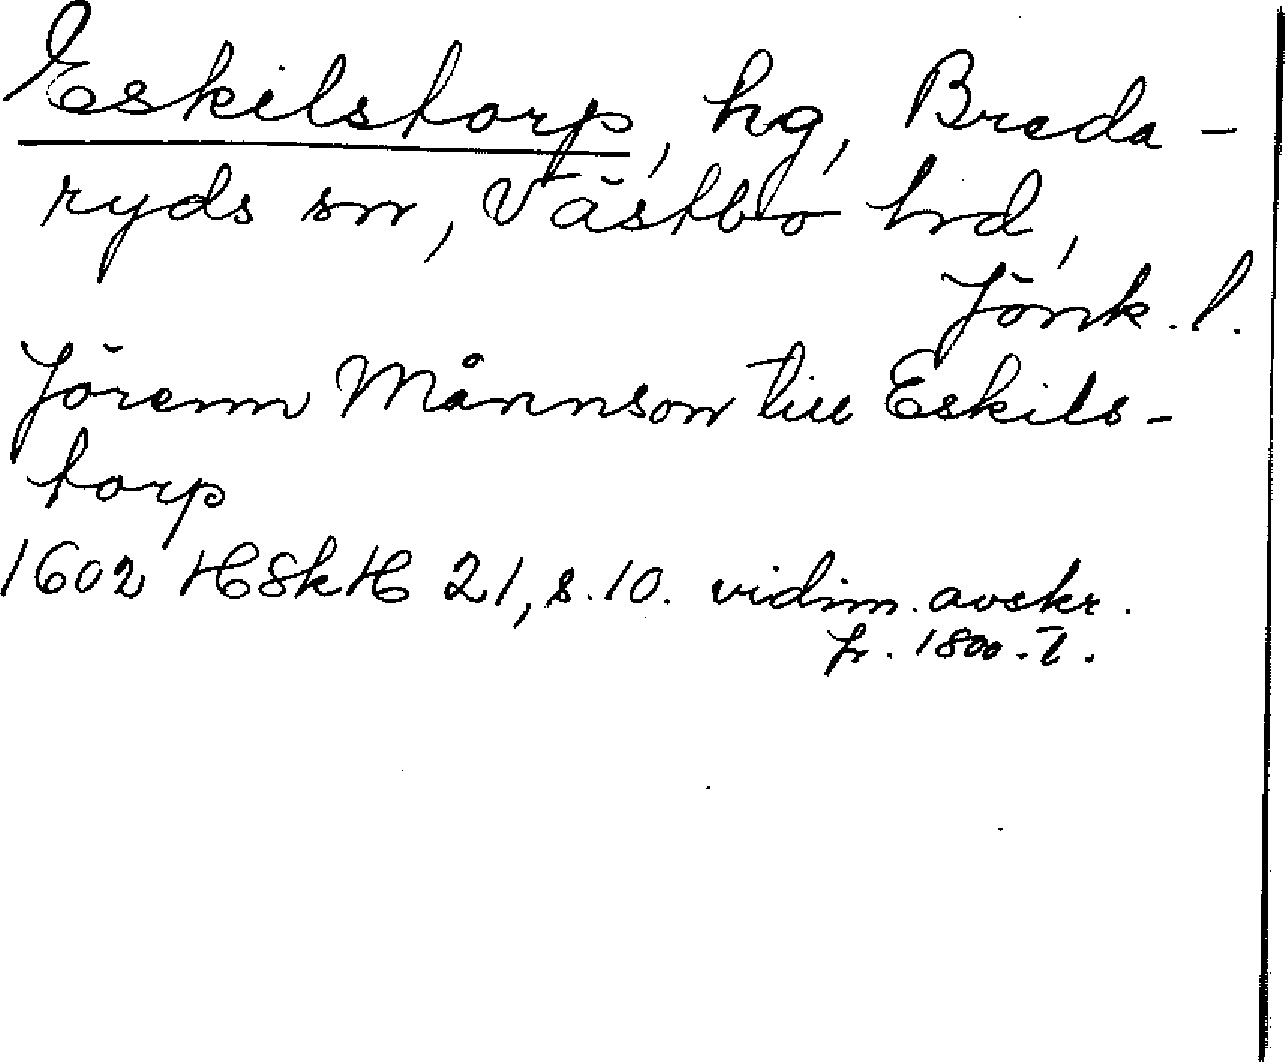 Eskilstorp, hg, Breda-
ryds sn, Västbo hrd,
Jönk. l.
Jörenn Månnson till Eskils-
torp
1602 HSkH 21, s. 10. vidim. avskr.
fr. 1800-t.